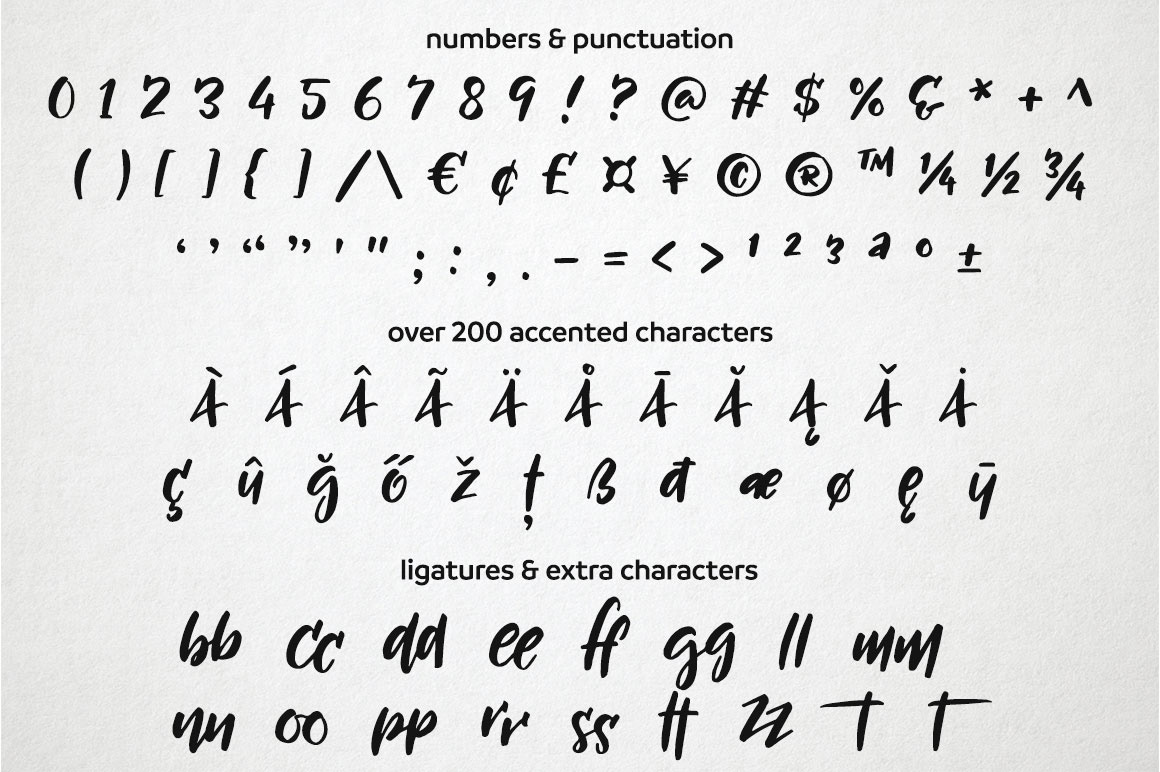 numbers & punctuation
0 1 2 3 4 5 6 7 8 9 ! ? @ # $ % & * + ^
( ) [ ] { ] / \ € ¢ £ ¤ ¥ © ® ™ ¼ ½ ¾
‘ ’ “ ” ' " ; : , . – = < > ¹ ² ³ ª º ±
over 200 accented characters
À Á Â Ã Ä Å Ā Ă Ą Ǎ Ȧ
ç û ğ ő ž ț ß đ æ ø ę ȳ
ligatures & extra characters
bb cc dd ee ff gg ll mm
nn oo pp rr ss tt zz T T